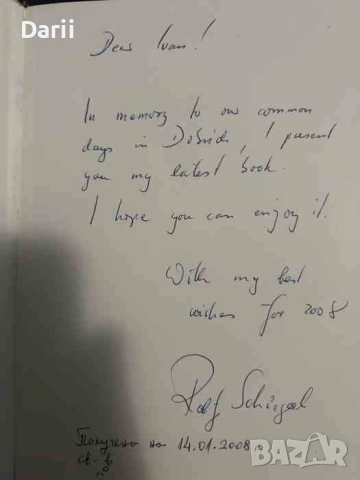 Darii
Dear Ivan!
In memory to our common
days in Dobrich, I present
you my latest book.
I hope you can enjoy it.
With my best
wishes for 2008
Rolf
Получено на 14.01.2008 г.
св-в
BAZAR